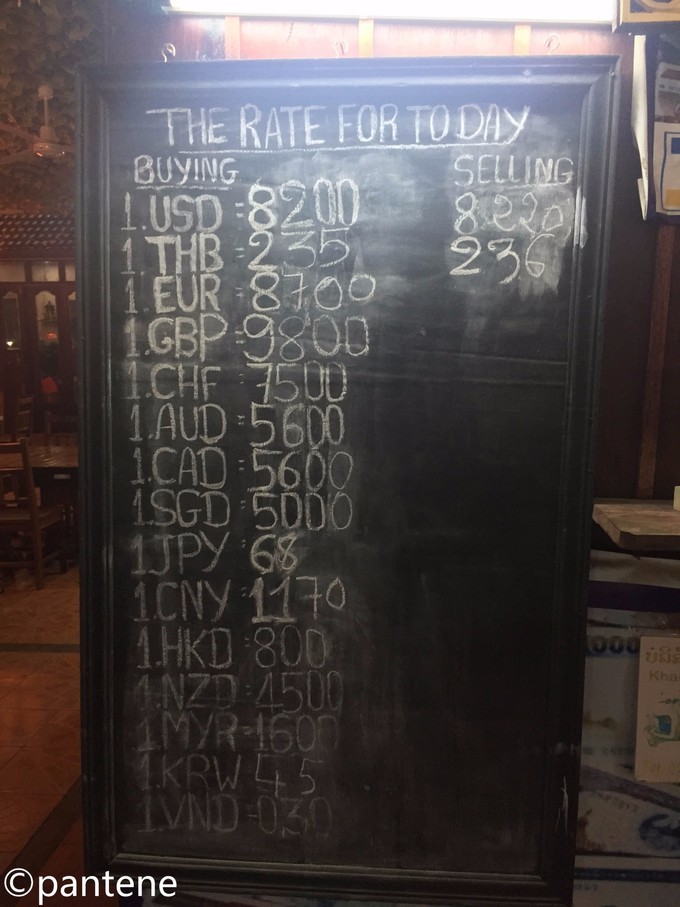 THE RATE FOR TODAY
BUYING SELLING
1.USD=8200 8220
1.THB=235 236
1.EUR=8700
1.GBP=9800
1.CHF=7500
1.AUD=5600
1.CAD=5600
1.SGD=5000
1JPY=68
1.CNY=1170
1.HKD=800
1.NZD=4500
1MYR=1600
1.KRW 4.5
1.VND=0.30
000
Kha
©pantene